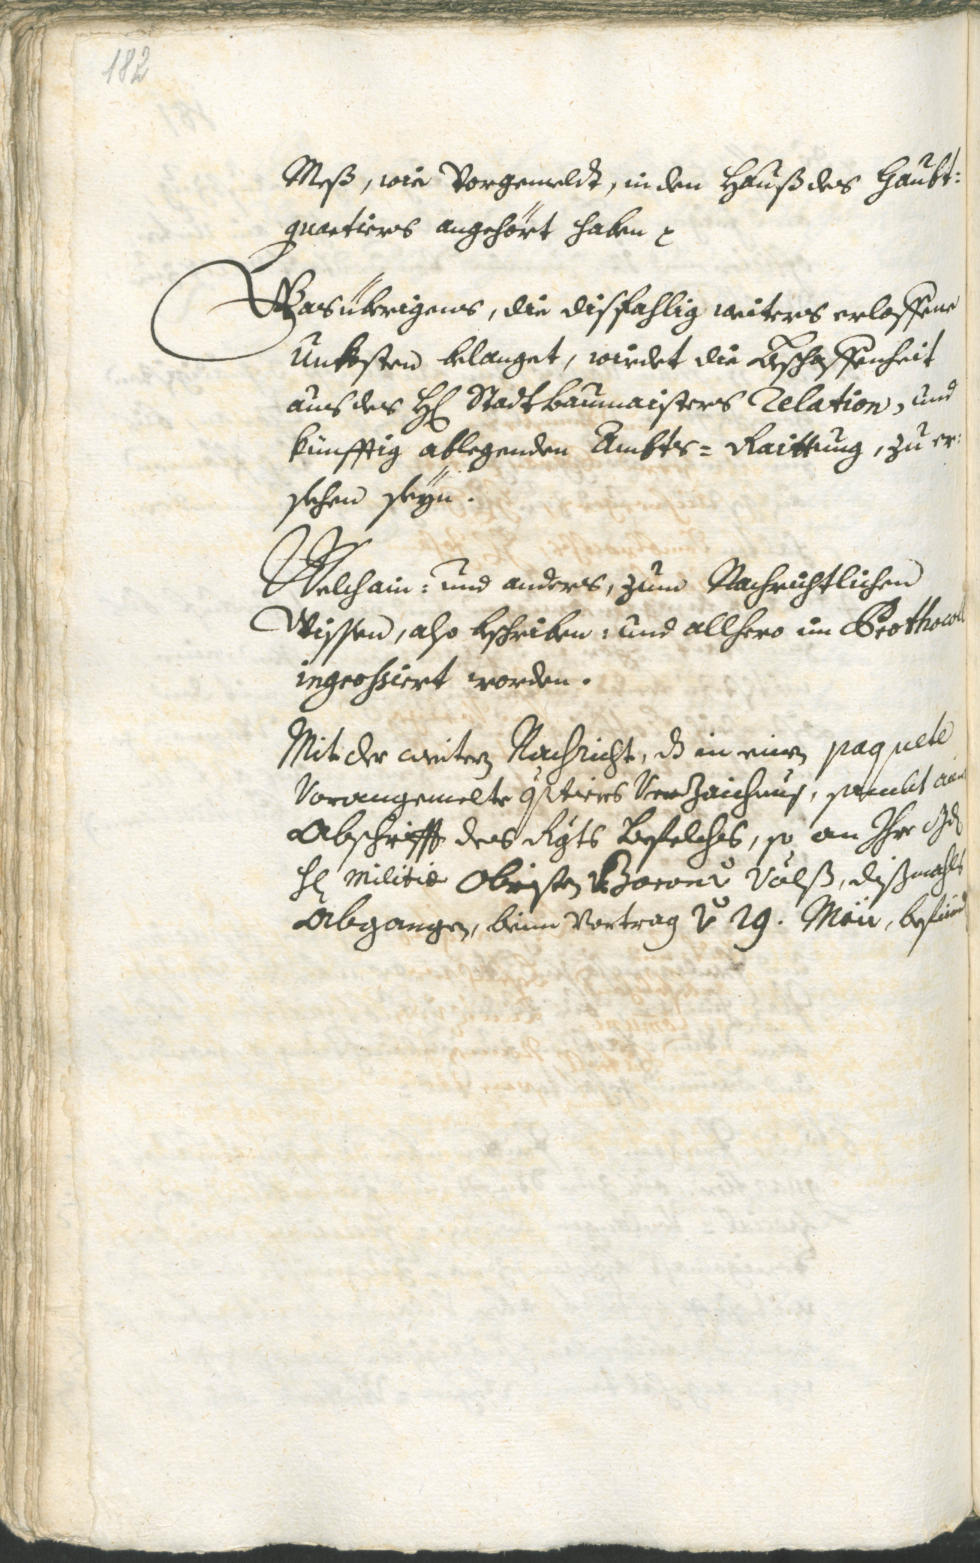 182
Meß, wie Vorgemeldt, in den Hauß des Haubt:
quartiers angehört haben
Was übrigens, die disfahlig weiters erloffene
Unkosten belanget, würdet die Beschaffenheit
aus des H. Stadtbaumaisters Relation, und
künfftig ablegenden Ambts= Raittung, zu er:
sehen seÿn.
Welch ain: und anders, zum Nachrichtlichen
Wissen, also beschriben: und allhero im Prothocoll
ingrossiert worden.
Mit der weitern Nachricht, dz in einen paquete
Vorangemelte Verzaichnus, sambt ain
Abschrifft des Befelchs, so an Ihr
H militie Obristen Baron Völß, dißmahls
Abgangen, beim Vortrag 29. Maii, befind